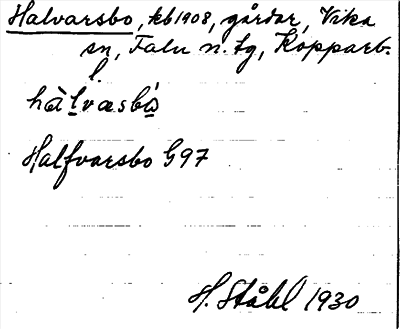 Halvarsbo, kb 1908, gårdar, Vika
sn, Falu n. tg, Kopparb.
l.
hàlvæsbó̱
Halfvarsbo G97
H. Ståhl 1930